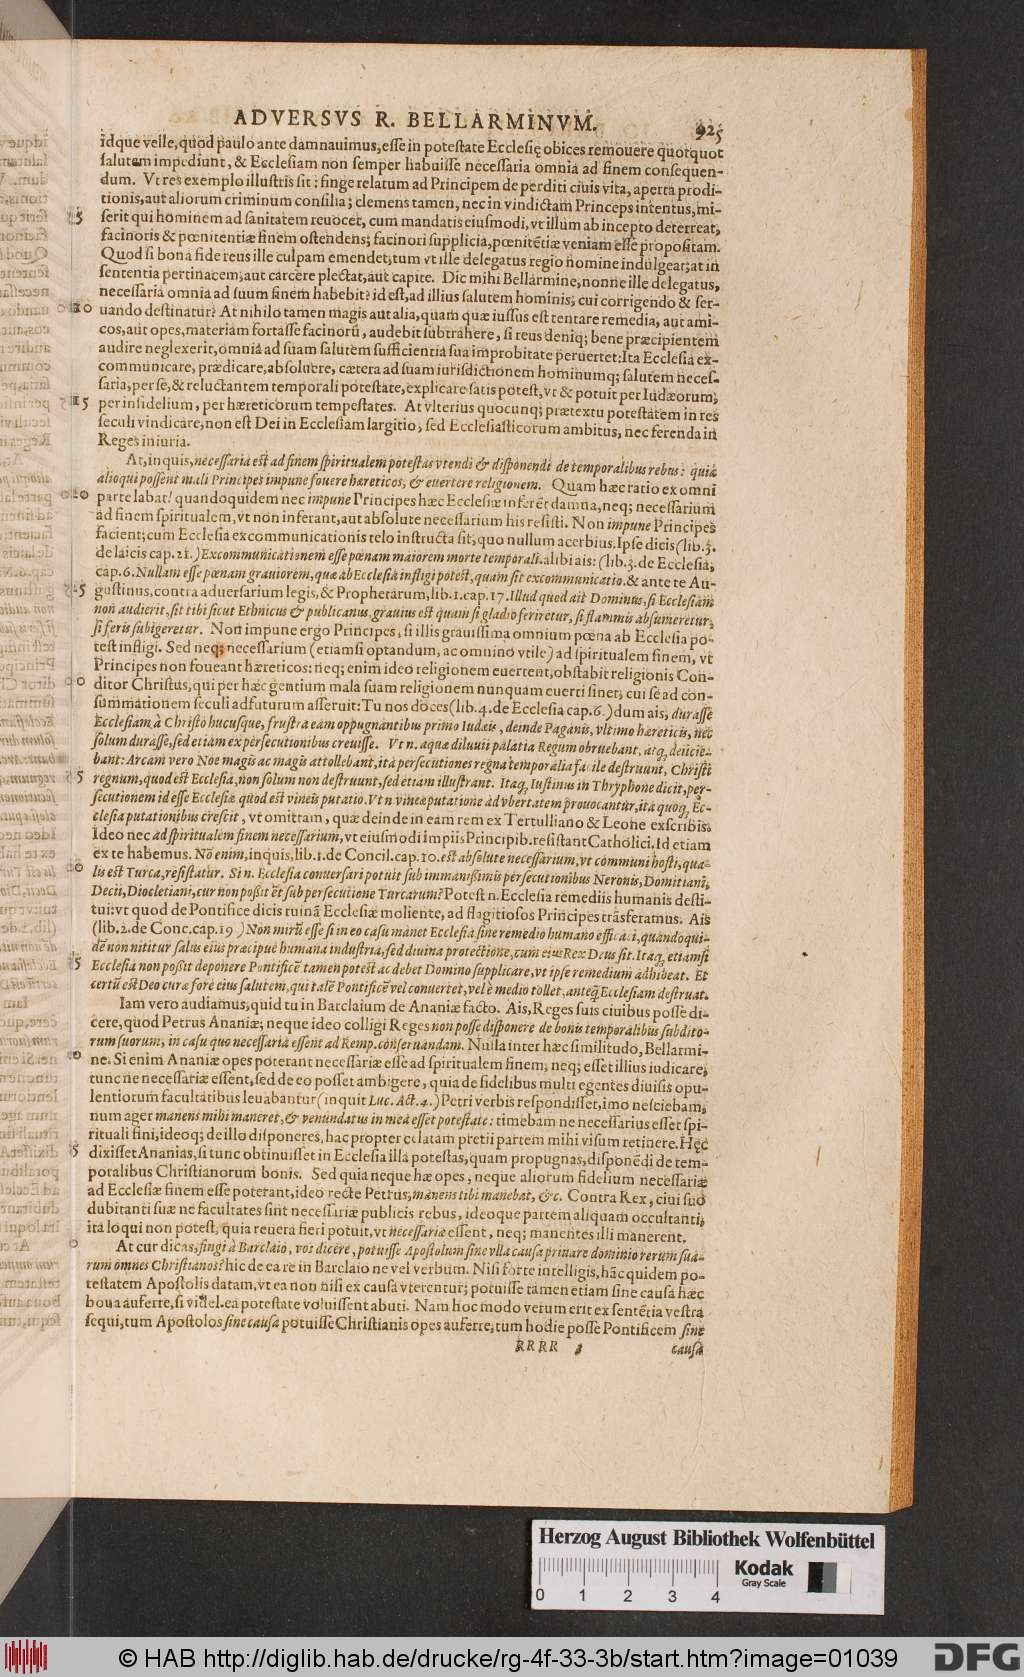 ADVERSVS R. BELLARMINVM. 925
idque velle, quod paulo ante damnauimus, esse in potestate Ecclesię obices remouere quotquot
salutem impediunt, & Ecclesiam non semper habuisse necessaria omnia ad finem consequen-
dum. Vt res exemplo illustris sit: finge relatum ad Principem de perditi ciuis vita, aperta prodi-
tionis, aut aliorum criminum consilia; clemens tamen, nec in vindictam Princeps intentus, mi-
5 serit qui hominem ad sanitatem reuocet, cum mandatis eiusmodi, vt illum ab incepto deterreat,
facinoris & pœnitentiæ finem ostendens; facinori supplicia, pœnitẽtiæ veniam esse propositam.
Quod si bona fide reus ille culpam emendet, tum vt ille delegatus regio nomine indulgeat; at in
sententia pertinacem, aut carcere plectat, aut capite. Dic mihi Bellarmine, nonne ille delegatus,
necessaria omnia ad suum finem habebit? id est, ad illius salutem hominis, cui corrigendo & ser-
10 uando destinatur? At nihilo tamen magis aut alia, quam quæ iussus est tentare remedia, aut ami-
cos, aut opes, materiam fortasse facinorũ, audebit subtrahere, si reus deniq; bene præcipientem
audire neglexerit, omnia ad suam salutem sufficientia sua improbitate peruertet: Ita Ecclesia ex-
communicare, prædicare, absoluere, cætera ad suam iurisdictionem hominumq; salutem neces-
saria, per se, & reluctantem temporali potestate, explicare satis potest, vt & potuit per Iudæorum,
15 per infidelium, per hæreticorum tempestates. At vlterius quocunq; prætextu potestatem in res
seculi vindicare, non est Dei in Ecclesiam largitio, sed Ecclesiasticorum ambitus, nec ferenda in
Reges iniuria.
At, inquis, necessaria est ad finem spiritualem potestas vtendi & disponendi de temporalibus rebus: quia
alioqui possent mali Principes impune fouere hæreticos, & euertere religionem. Quam hæc ratio ex omni
20 parte labat! quandoquidem nec impune Principes hæc Ecclesiæ inferẽt damna, neq; necessarium
ad finem spiritualem, vt non inferant, aut absolute necessarium his resisti. Non impune Principes
facient; cum Ecclesia excommunicationis telo instructa sit, quo nullum acerbius. Ipse dicis (lib. 3.
de laicis cap. 21.) Excommunicationem esse pœnam maiorem morte temporali. alibi ais: (lib. 3. de Ecclesia,
cap. 6. Nullam esse pœnam grauiorem, quæ ab Ecclesia infligi potest, quam sit excommunicatio. & ante te Au-
25 gustinus, contra aduersarium legis, & Prophetarum, lib. 1. cap. 17. Illud quod ait Dominus, si Ecclesiam
non audierit, sit tibi sicut Ethnicus & publicanus, grauius est quam si gladio feriretur, si flammis absumeretur,
si feris subigeretur. Non impune ergo Principes, si illis grauissima omnium pœna ab Ecclesia po-
test infligi. Sed neq; necessarium (etiamsi optandum, ac omnino vtile) ad spiritualem finem, vt
Principes non foueant hæreticos: neq; enim ideo religionem euertent, obstabit religionis Con-
ditor Christus, qui per hæc gentium mala suam religionem nunquam euerti sinet, cui se ad con-
summationem seculi adfuturum asseruit: Tu nos doces (lib. 4. de Ecclesia cap. 6.) dum ais, durasse
Ecclesiam à Christo hucusque, frustra eam oppugnantibus primo Iudæis, deinde Paganis, vltimo hæreticis, nec
solum durasse, sed etiam ex persecutionibus creuisse. Vt n. aquæ diluuii palatia Regum obruebant, atq; deiicie-
bant: Arcam vero Noe magis ac magis attollebant, ita persecutiones regna temporalia facile destruunt, Christi
5 regnum, quod est Ecclesia, non solum non destruunt, sed etiam illustrant. Itaq; Iustinus in Thryphone dicit, per-
secutionem id esse Ecclesiæ quod est vineis putatio. Vt n vinea putatione ad vbertatem prouocantur, ita quoq; Ec-
clesia putationibus crescit, vt omittam, quæ deinde in eam rem ex Tertulliano & Leone exscribis.
Ideo nec ad spiritualem finem necessarium, vt eiusmodi impiis Principib. resistant Catholici. Id etiam
ex te habemus. Nõ enim, inquis, lib. 1. de Concil. cap. 10. est absolute necessarium, vt communi hosti, qua-
lis est Turca, resistatur. Si n. Ecclesia conuersari potuit sub immanissimis persecutionibus Neronis, Domitiani,
Decii, Diocletiani, cur non possit et sub persecutione Turcarum? Potest n. Ecclesia remediis humanis desti-
tui: vt quod de Pontifice dicis ruinã Ecclesiæ moliente, ad flagitiosos Principes trãsferamus. Ais
(lib. 2. de Conc. cap. 19) Non mirũ esse si in eo casu manet Ecclesia sine remedio humano efficaci, quandoqui-
dẽ non nititur salus eius præcipuè humana industria, sed diuina protectione, cum eius Rex Deus sit. Itaq; etiamsi
5 Ecclesia non possit deponere Pontificẽ tamen potest ac debet Domino supplicare, vt ipse remedium adhibeat. Et
certũ est Deo curæ fore eius salutem, qui talẽ Pontificẽ vel conuertet, vel è medio tollet, anteq̃ Ecclesiam destruat.
Iam vero audiamus, quid tu in Barclaium de Ananiæ facto. Ais, Reges suis ciuibus posse di-
cere, quod Petrus Ananiæ; neque ideo colligi Reges non posse disponere de bonis temporalibus subdito-
rum suorum, in casu quo necessaria essent ad Remp. conseruandam. Nulla inter hæc similitudo, Bellarmi-
ne. Si enim Ananiæ opes poterant necessariæ esse ad spiritualem finem, neq; esset illius iudicare,
tunc ne necessariæ essent, sed de eo posset ambigere, quia de fidelibus multi egentes diuisis opu-
lentiorum facultatibus leuabantur (inquit Luc. Act. 4.) Petri verbis respondisset, imo nesciebam,
num ager manens mihi maneret, & venundatus in mea esset potestate: timebam ne necessarius esset spi-
rituali fini, ideoq; de illo disponeres, hac propter celatam pretii partem mihi visum retinere. Hęc
5 dixisset Ananias, si tunc obtinuisset in Ecclesia illa potestas, quam propugnas, disponẽdi de tem-
poralibus Christianorum bonis. Sed quia neque hæ opes, neque aliorum fidelium necessariæ
ad Ecclesiæ finem esse poterant, ideo recte Petrus, manens tibi manebat, &c. Contra Rex, ciui suo
dubitanti suæ ne facultates sint necessariæ publicis rebus, ideoque partem aliquam occultanti,
ita loqui non potest, quia reuera fieri potuit, vt necessariæ essent, neq; manentes illi manerent.
At cur dicas, fingi à Barclaio, vos dicere, potuisse Apostolum sine vlla causa priuare dominio rerum sua-
rum omnes Christianos? hic de ea re in Barclaio ne vel verbum. Nisi forte intelligis, hãc quidem po-
testatem Apostolis datam, vt ea non nisi ex causa vterentur; potuisse tamen etiam sine causa hæc
bona auferre, si videl. ea potestate voluissent abuti. Nam hoc modo verum erit ex sentẽtia vestra
sequi, tum Apostolos sine causa potuisse Christianis opes auferre, tum hodie posse Pontificem sine
RRRR 3 causa
Herzog August Bibliothek Wolfenbüttel
Kodak
Gray Scale
0 1 2 3 4
© HAB http://diglib.hab.de/drucke/rg-4f-33-3b/start.htm?image=01039
DFG